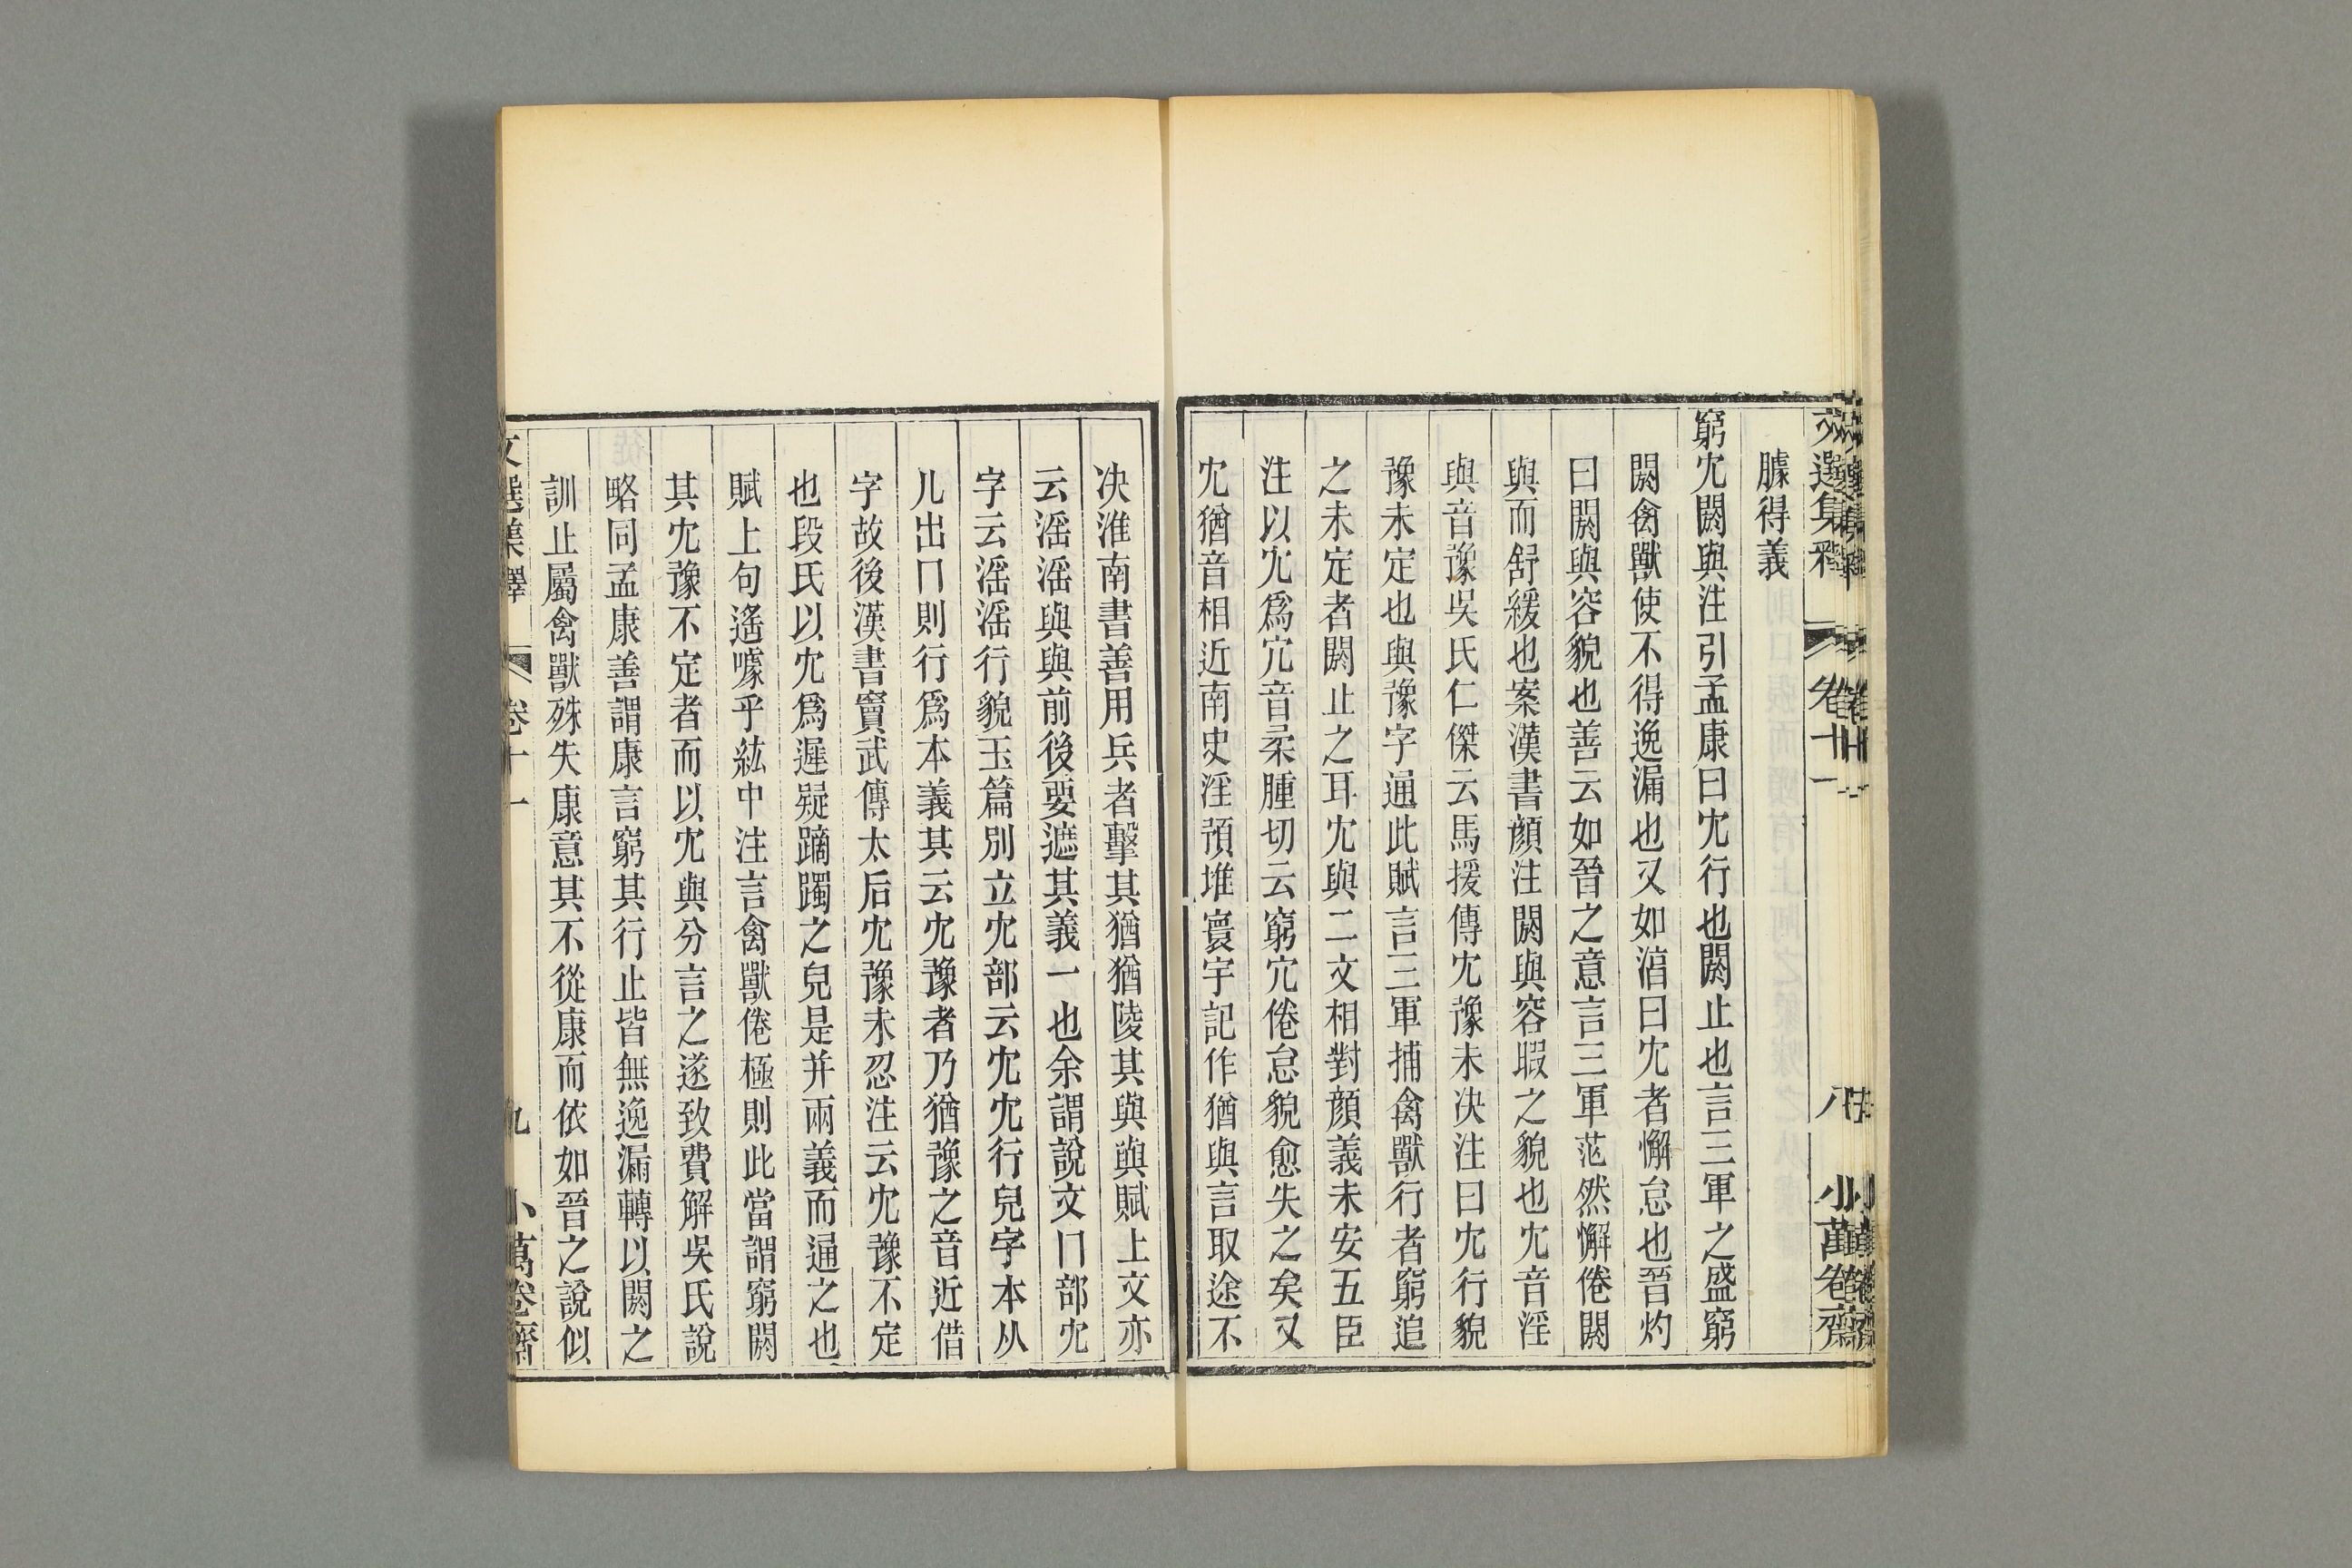 文選集釋 卷十一 八 小萬卷齋
臄得義
窮冘閼與注引孟康曰冘行也閼止也言三軍之盛窮
閼禽獸使不得逸漏也又如湻曰冘者懈怠也晉灼
曰閼與容貌也善云如晉之意言三軍茫然懈倦閼
與而舒緩也案漢書顏注閼與容暇之貌也冘音淫
與音豫吳氏仁傑云馬援傳冘豫未決注曰冘行貌
豫未定也與豫字通此賦言三軍捕禽獸行者窮追
之未定者閼止之耳冘與二文相對顏義未安五臣
注以冘爲宂音柔腫切云窮宂倦怠貌愈失之矣又
冘猶音相近南史淫預堆寰宇記作猶與言取途不
決淮南書善用兵者擊其猶猶陵其與與賦上文亦
云滛滛與與前後要遮其義一也余謂說文冂部冘
字云滛滛行貌玉篇別立冘部云冘冘行皃字本从
儿出冂則行爲本義其云冘豫者乃猶豫之音近借
字故後漢書竇武傳太后冘豫未忍注云冘豫不定
也段氏以冘爲遲疑蹢躅之皃是并兩義而通之也
賦上句遙噱乎紘中注言禽獸倦極則此當謂窮閼
其冘豫不定者而以冘與分言之遂致費解吳氏說
略同孟康善謂康言窮其行止皆無逸漏轉以閼之
訓止屬禽獸殊失康意其不從康而依如晉之說似
文選集釋 卷十一 九 小萬卷齋